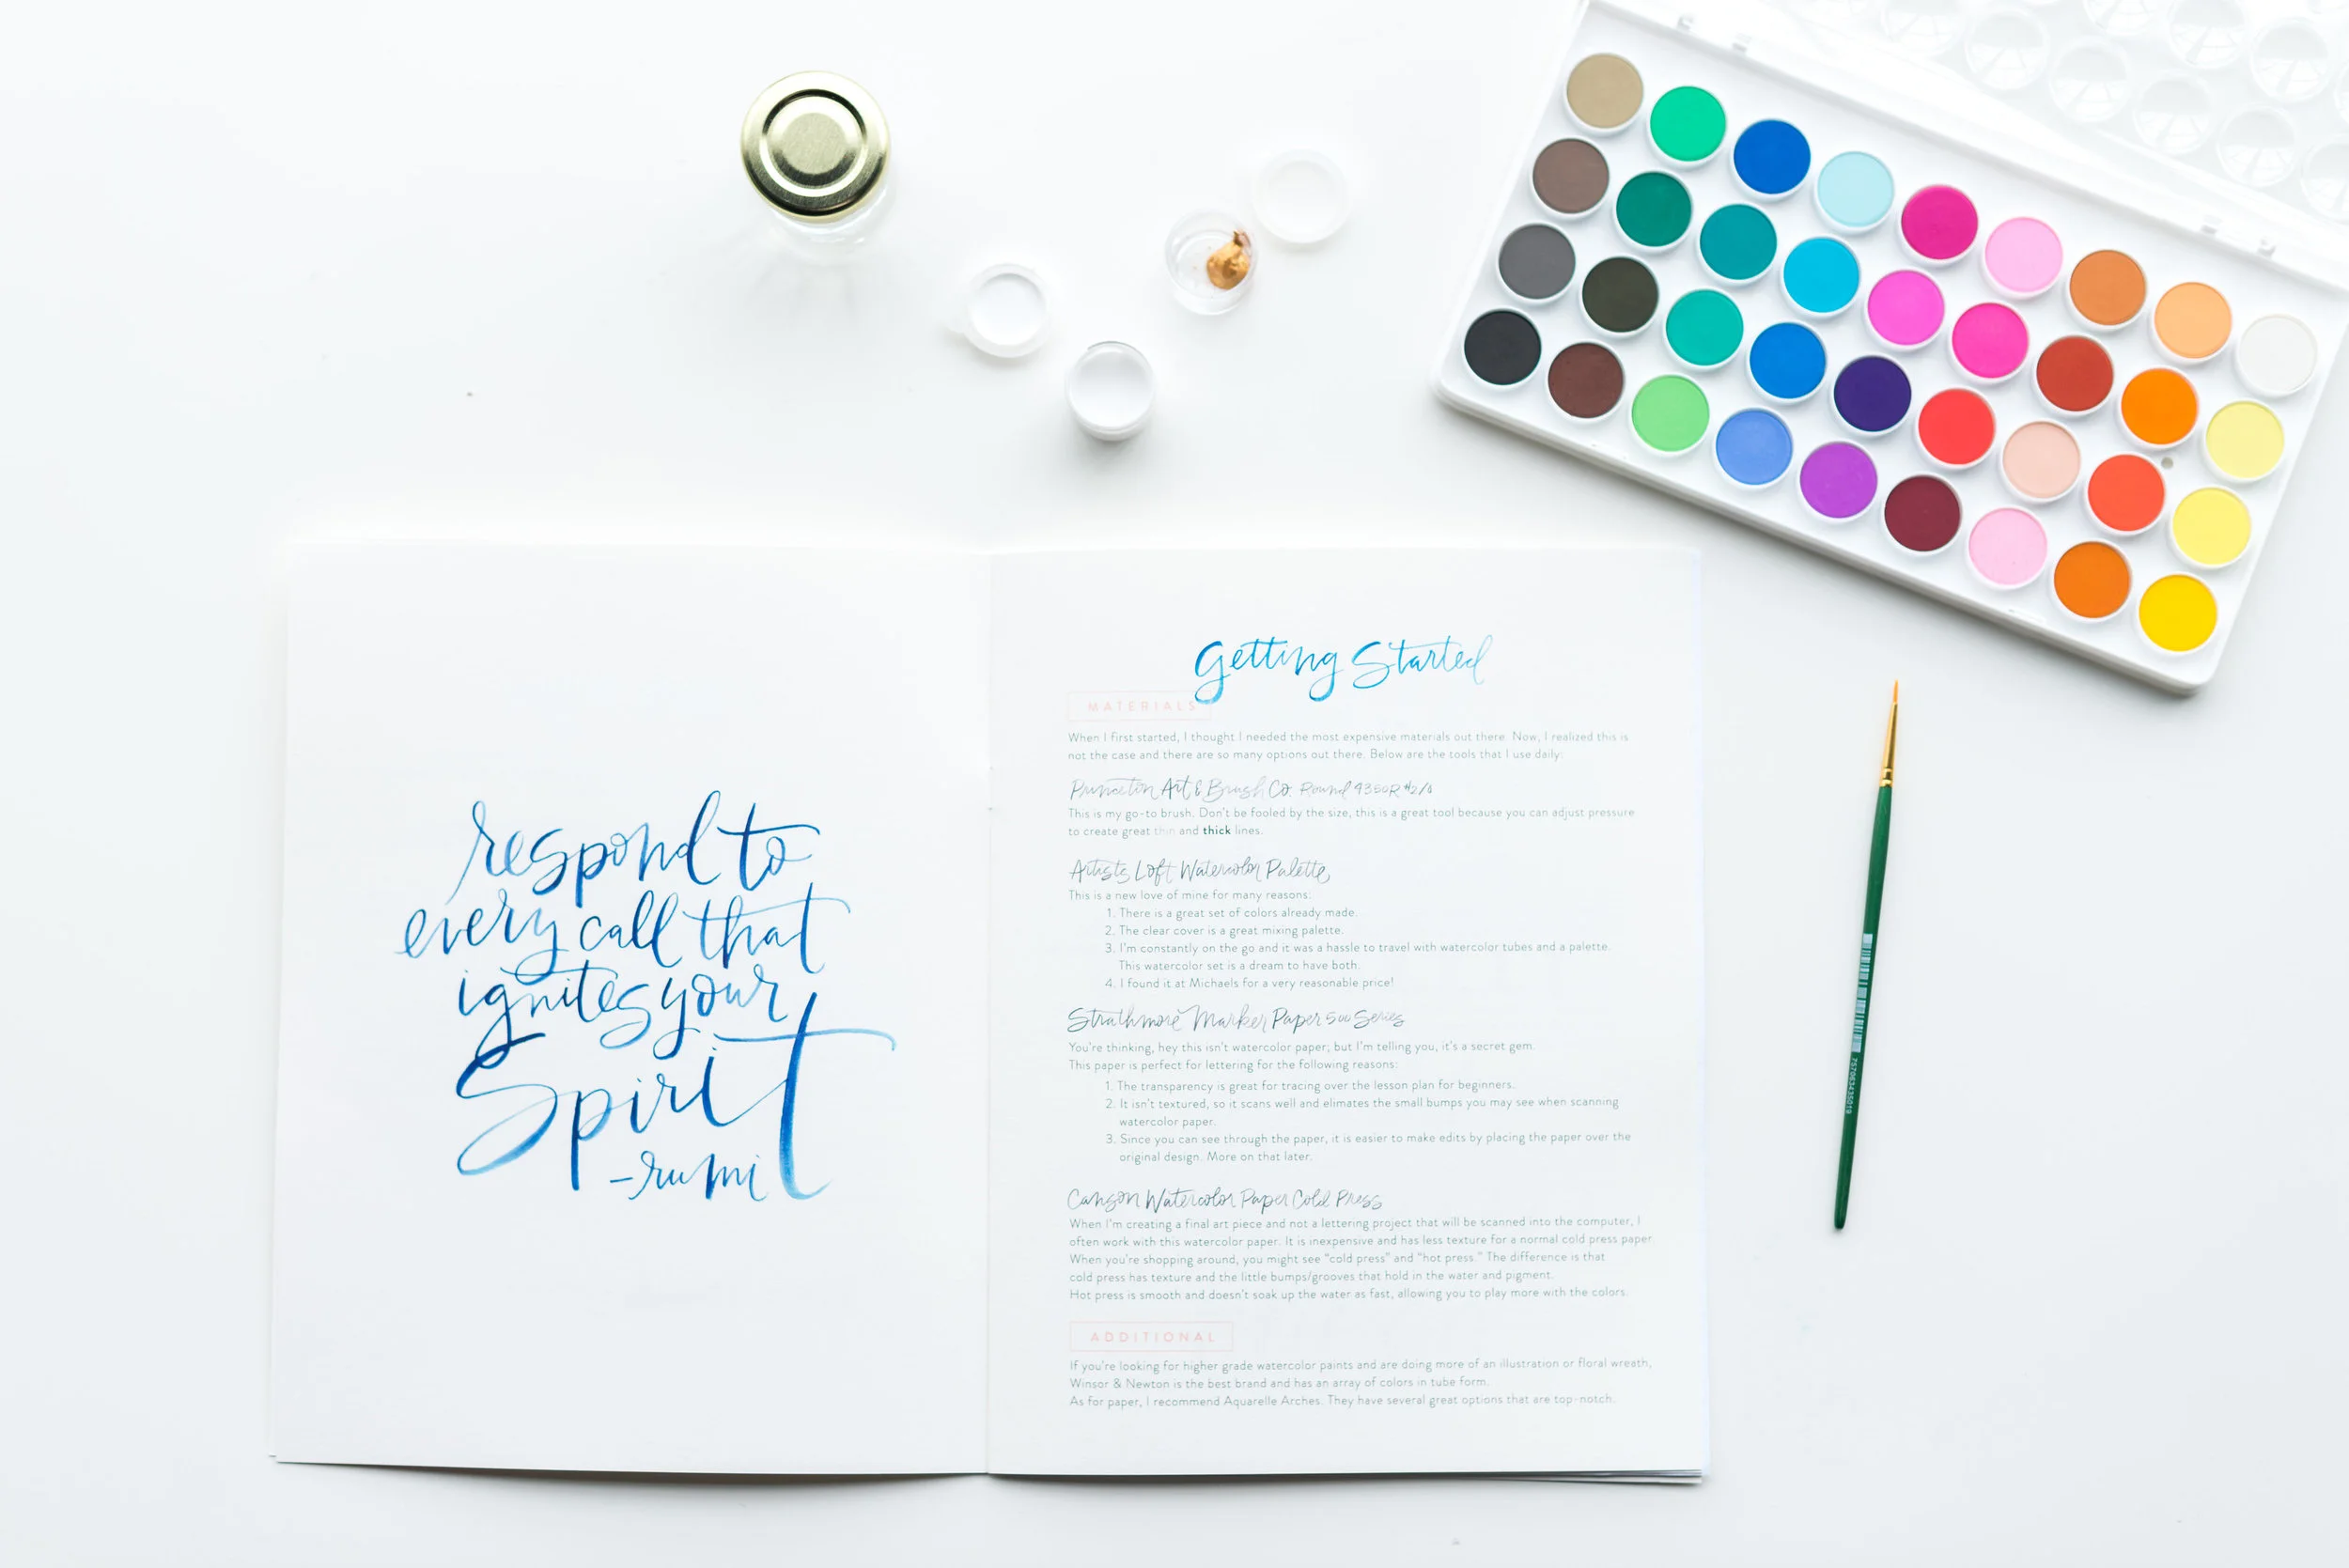 respond to
every call that
ignites your
Spirit
-rumi
Getting Started
MATERIALS
When I first started, I thought I needed the most expensive materials out there. Now, I realized this is
not the case and there are so many options out there. Below are the tools that I use daily:
Princeton Art & Brush Co. Round 4350R #2/0
This is my go-to brush. Don't be fooled by the size, this is a great tool because you can adjust pressure
to create great thin and thick lines.
Artists Loft Watercolor Palette
This is a new love of mine for many reasons:
1. There is a great set of colors already made.
2. The clear cover is a great mixing palette.
3. I'm constantly on the go and it was a hassle to travel with watercolor tubes and a palette.
This watercolor set is a dream to have both.
4. I found it at Michaels for a very reasonable price!
Strathmore Marker Paper 500 Series
You're thinking, hey this isn't watercolor paper; but I'm telling you, it's a secret gem.
This paper is perfect for lettering for the following reasons:
1. The transparency is great for tracing over the lesson plan for beginners.
2. It isn't textured, so it scans well and elimates the small bumps you may see when scanning
watercolor paper.
3. Since you can see through the paper, it is easier to make edits by placing the paper over the
original design. More on that later.
Canson Watercolor Paper Cold Press
When I'm creating a final art piece and not a lettering project that will be scanned into the computer, I
often work with this watercolor paper. It is inexpensive and has less texture for a normal cold press paper.
When you're shopping around, you might see "cold press" and "hot press." The difference is that
cold press has texture and the little bumps/grooves that hold in the water and pigment.
Hot press is smooth and doesn't soak up the water as fast, allowing you to play more with the colors.
ADDITIONAL
If you're looking for higher grade watercolor paints and are doing more of an illustration or floral wreath,
Winsor & Newton is the best brand and has an array of colors in tube form.
As for paper, I recommend Aquarelle Arches. They have several great options that are top-notch.